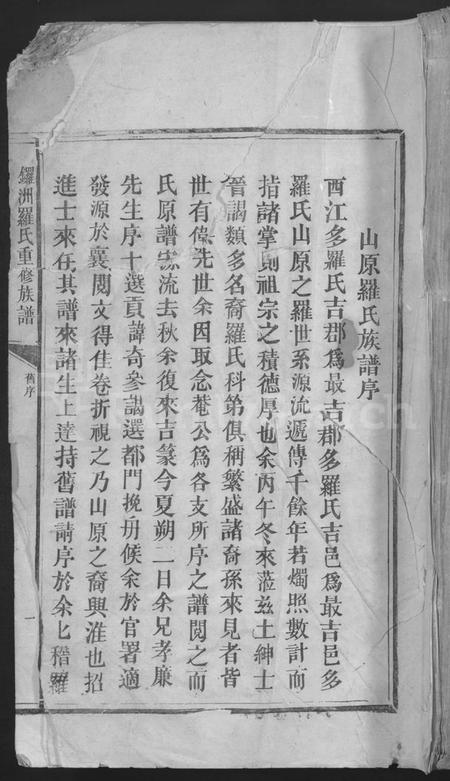 山原羅氏族譜序
西江多羅氏吉郡爲最吉郡多羅氏吉邑爲最吉邑多
羅氏山原之羅世系源流遞傳千餘年若燭照數計而
指諸掌則祖宗之積德厚也余丙午冬來蒞玆土紳士
晉謁類多名裔羅氏科第俱稱繁盛諸裔孫來見者皆
世有偉先世余因取念菴公爲各支所序之譜閱之而
氏原譜源流去秋余復來吉篆今夏朔二日余兄孝廉
先生序十選貢諱奇參謁選都門挽册候余於官署適
發源於襄閱文得佳卷折視之乃山原之裔興淮也招
進士來任其譜來諸生上達持舊譜請序於余上稽羅
鑼洲羅氏重修族譜
舊序
一